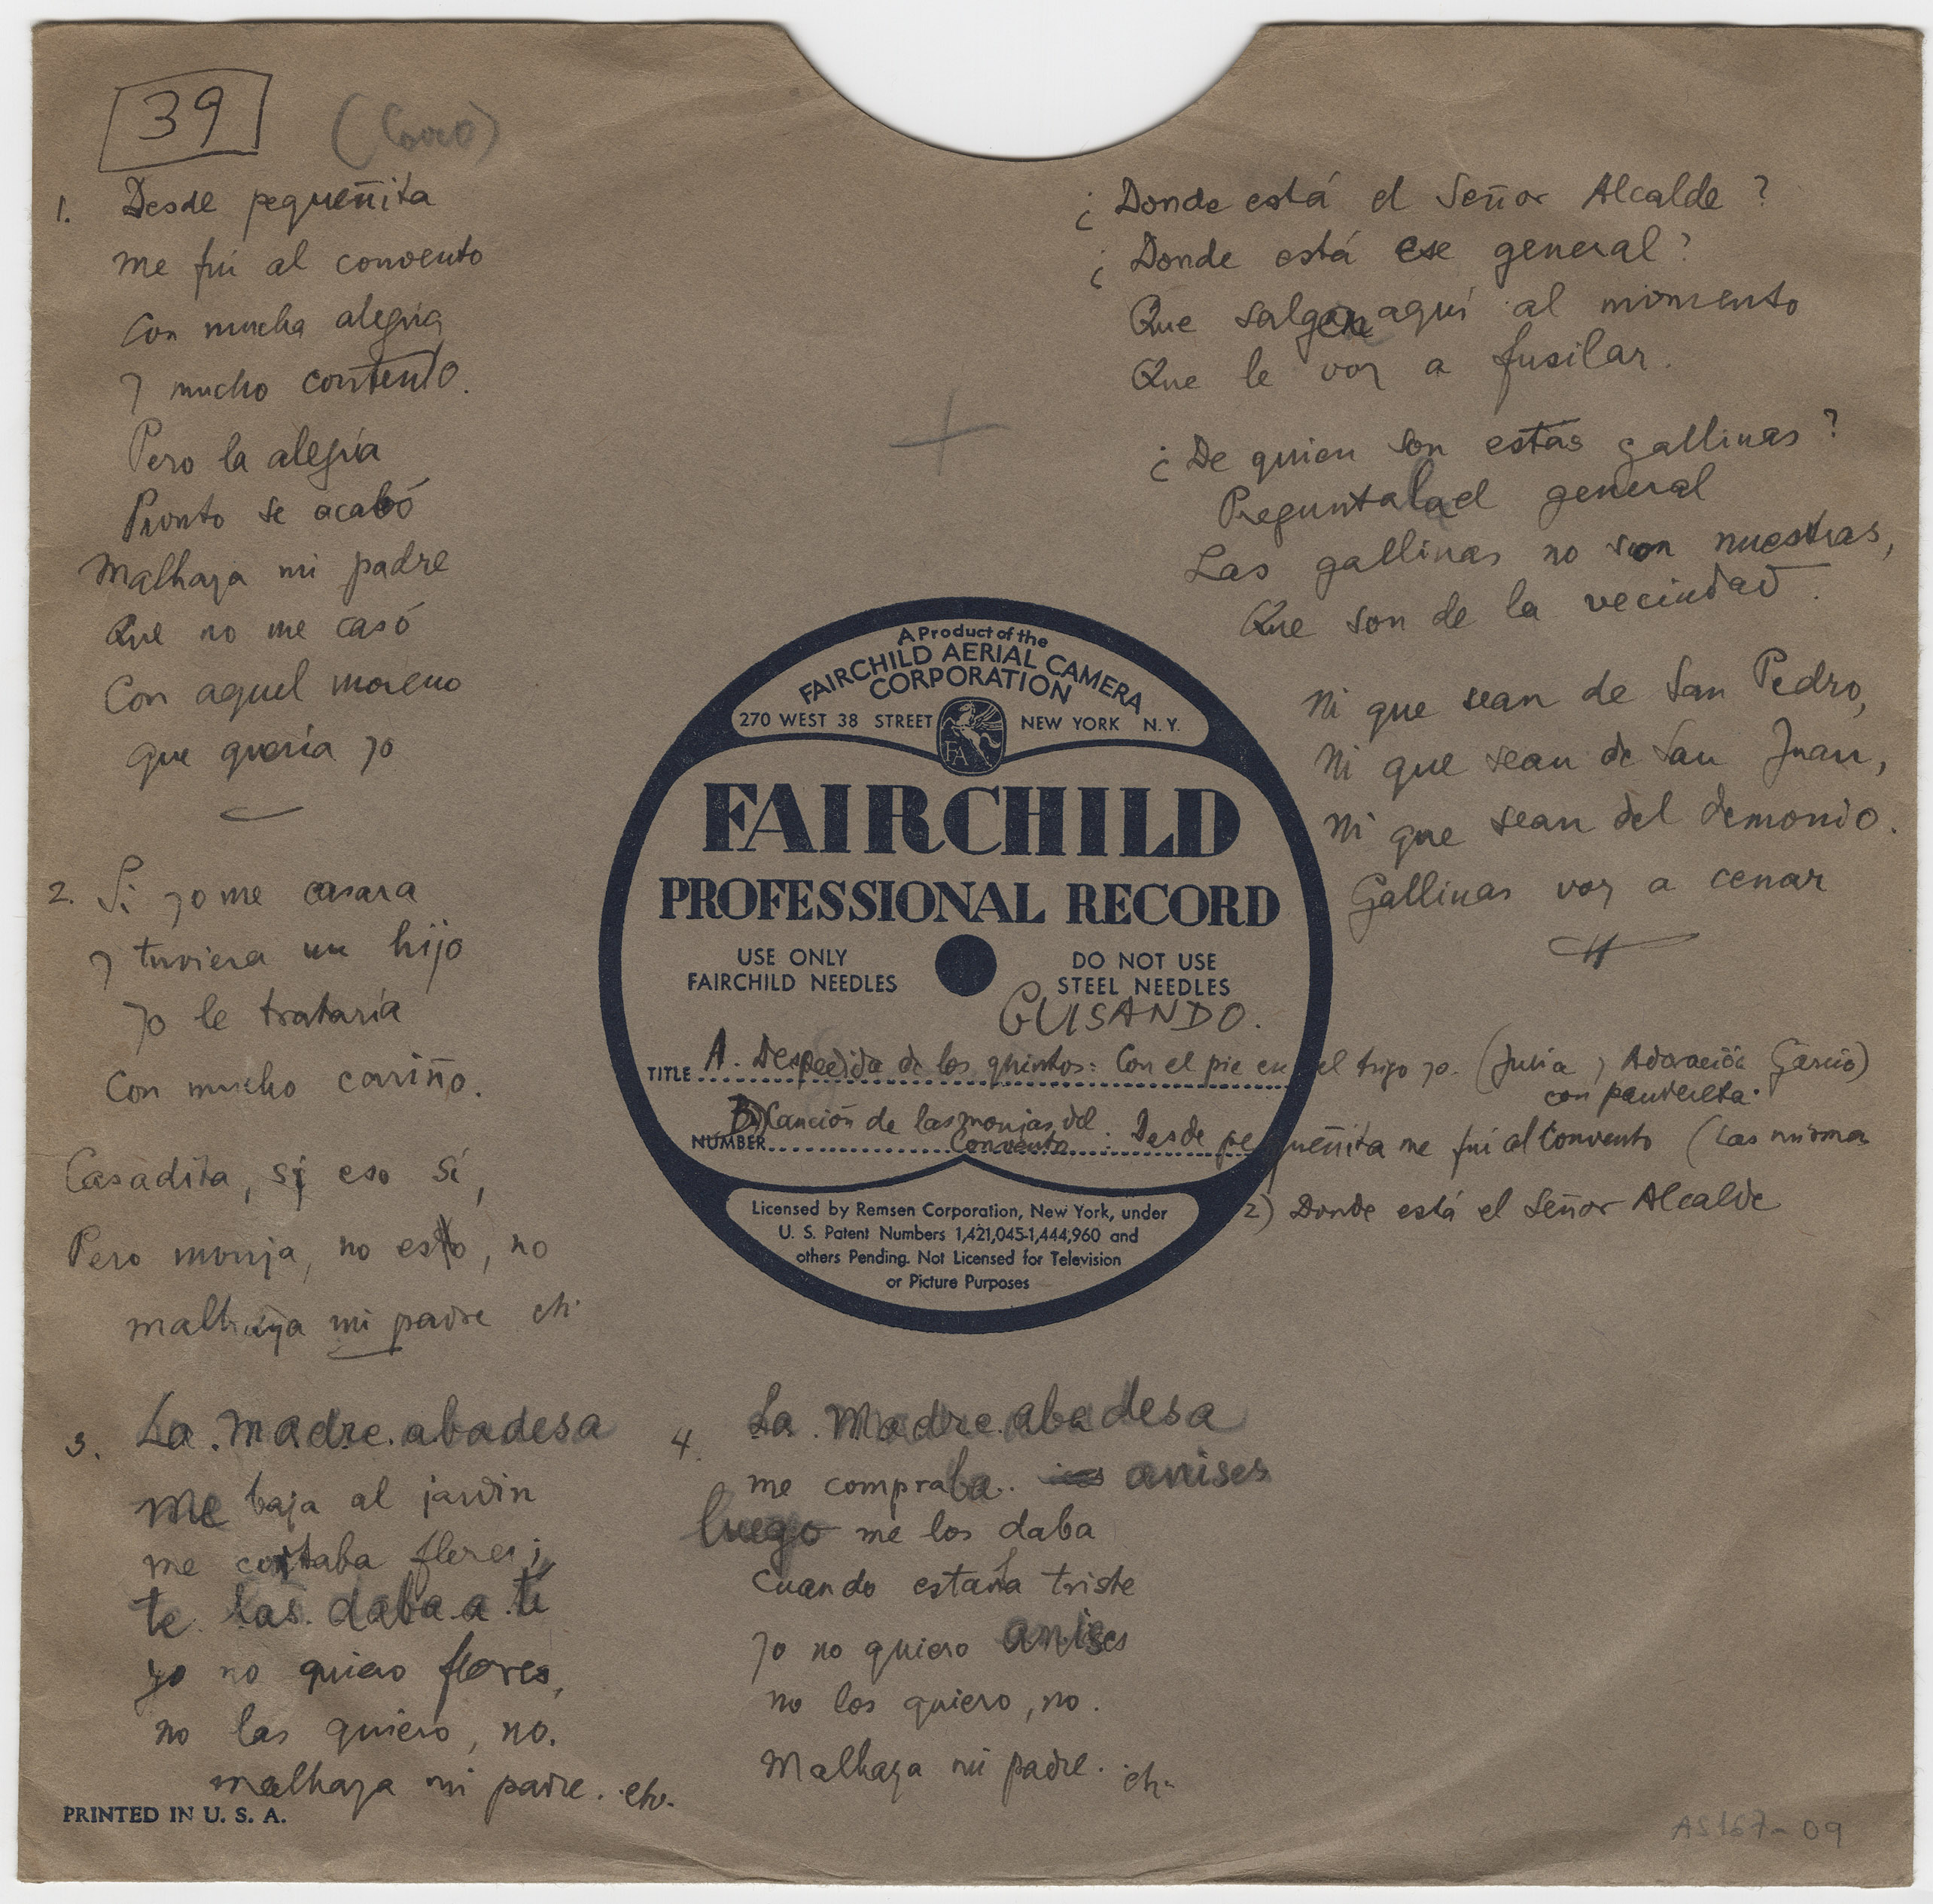 39
(Coro)
1. Desde pequeñita
me fui al convento
Con mucha alegria
y mucho contento.
Pero la alegría
Pronto se acabó
Malhaya mi padre
Que no me casó
Con aquel moreno
que quería yo
2. Si yo me casara
y tuviera un hijo
yo le trataría
Con mucho cariño.
Casadita, si eso sí,
Pero monja, no esto, no
malhaya mi padre etc.
3. La madre abadesa
Me baja al jardin
me cortaba flores;
te las daba a ti
yo no quiero flores,
no las quiero, no.
malhaya mi padre. etc.
4. La Madre abadesa
me compraba anises
luego me los daba
cuando estaba triste
yo no quiero anises
no los quiero, no.
Malhaya mi padre. etc.
¿Donde está el Señor Alcalde?
¿Donde está ese general?
Que salgan aquí al momento
Que le voy a fusilar.
¿De quien son estas gallinas?
Preguntala el general
Las gallinas no son nuestras,
Que son de la vecindad.
Ni que sean de San Pedro,
Ni que sean de San Juan,
Ni que sean del demonio.
Gallinas voy a cenar
A Product of the
FAIRCHILD AERIAL CAMERA
CORPORATION
270 WEST 38 STREET NEW YORK N.Y.
FA
FAIRCHILD
PROFESSIONAL RECORD
USE ONLY
FAIRCHILD NEEDLES
DO NOT USE
STEEL NEEDLES
GUISANDO.
TITLE A. Despedida de los quintos: Con el pie en el trigo yo. (Julia y Adoración García)
con pandereta.
NUMBER B) Canción de las monjas del Convento: Desde pequeñita me fui al Convento (Las mismas
2) Donde está el Señor Alcalde
Licensed by Remsen Corporation, New York, under
U. S. Patent Numbers 1,421,045-1,444,960 and
others Pending. Not Licensed for Television
or Picture Purposes
PRINTED IN U. S. A.
AS167-09